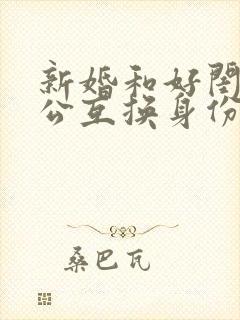 新婚和好闺
公互换身份
桑巴瓦